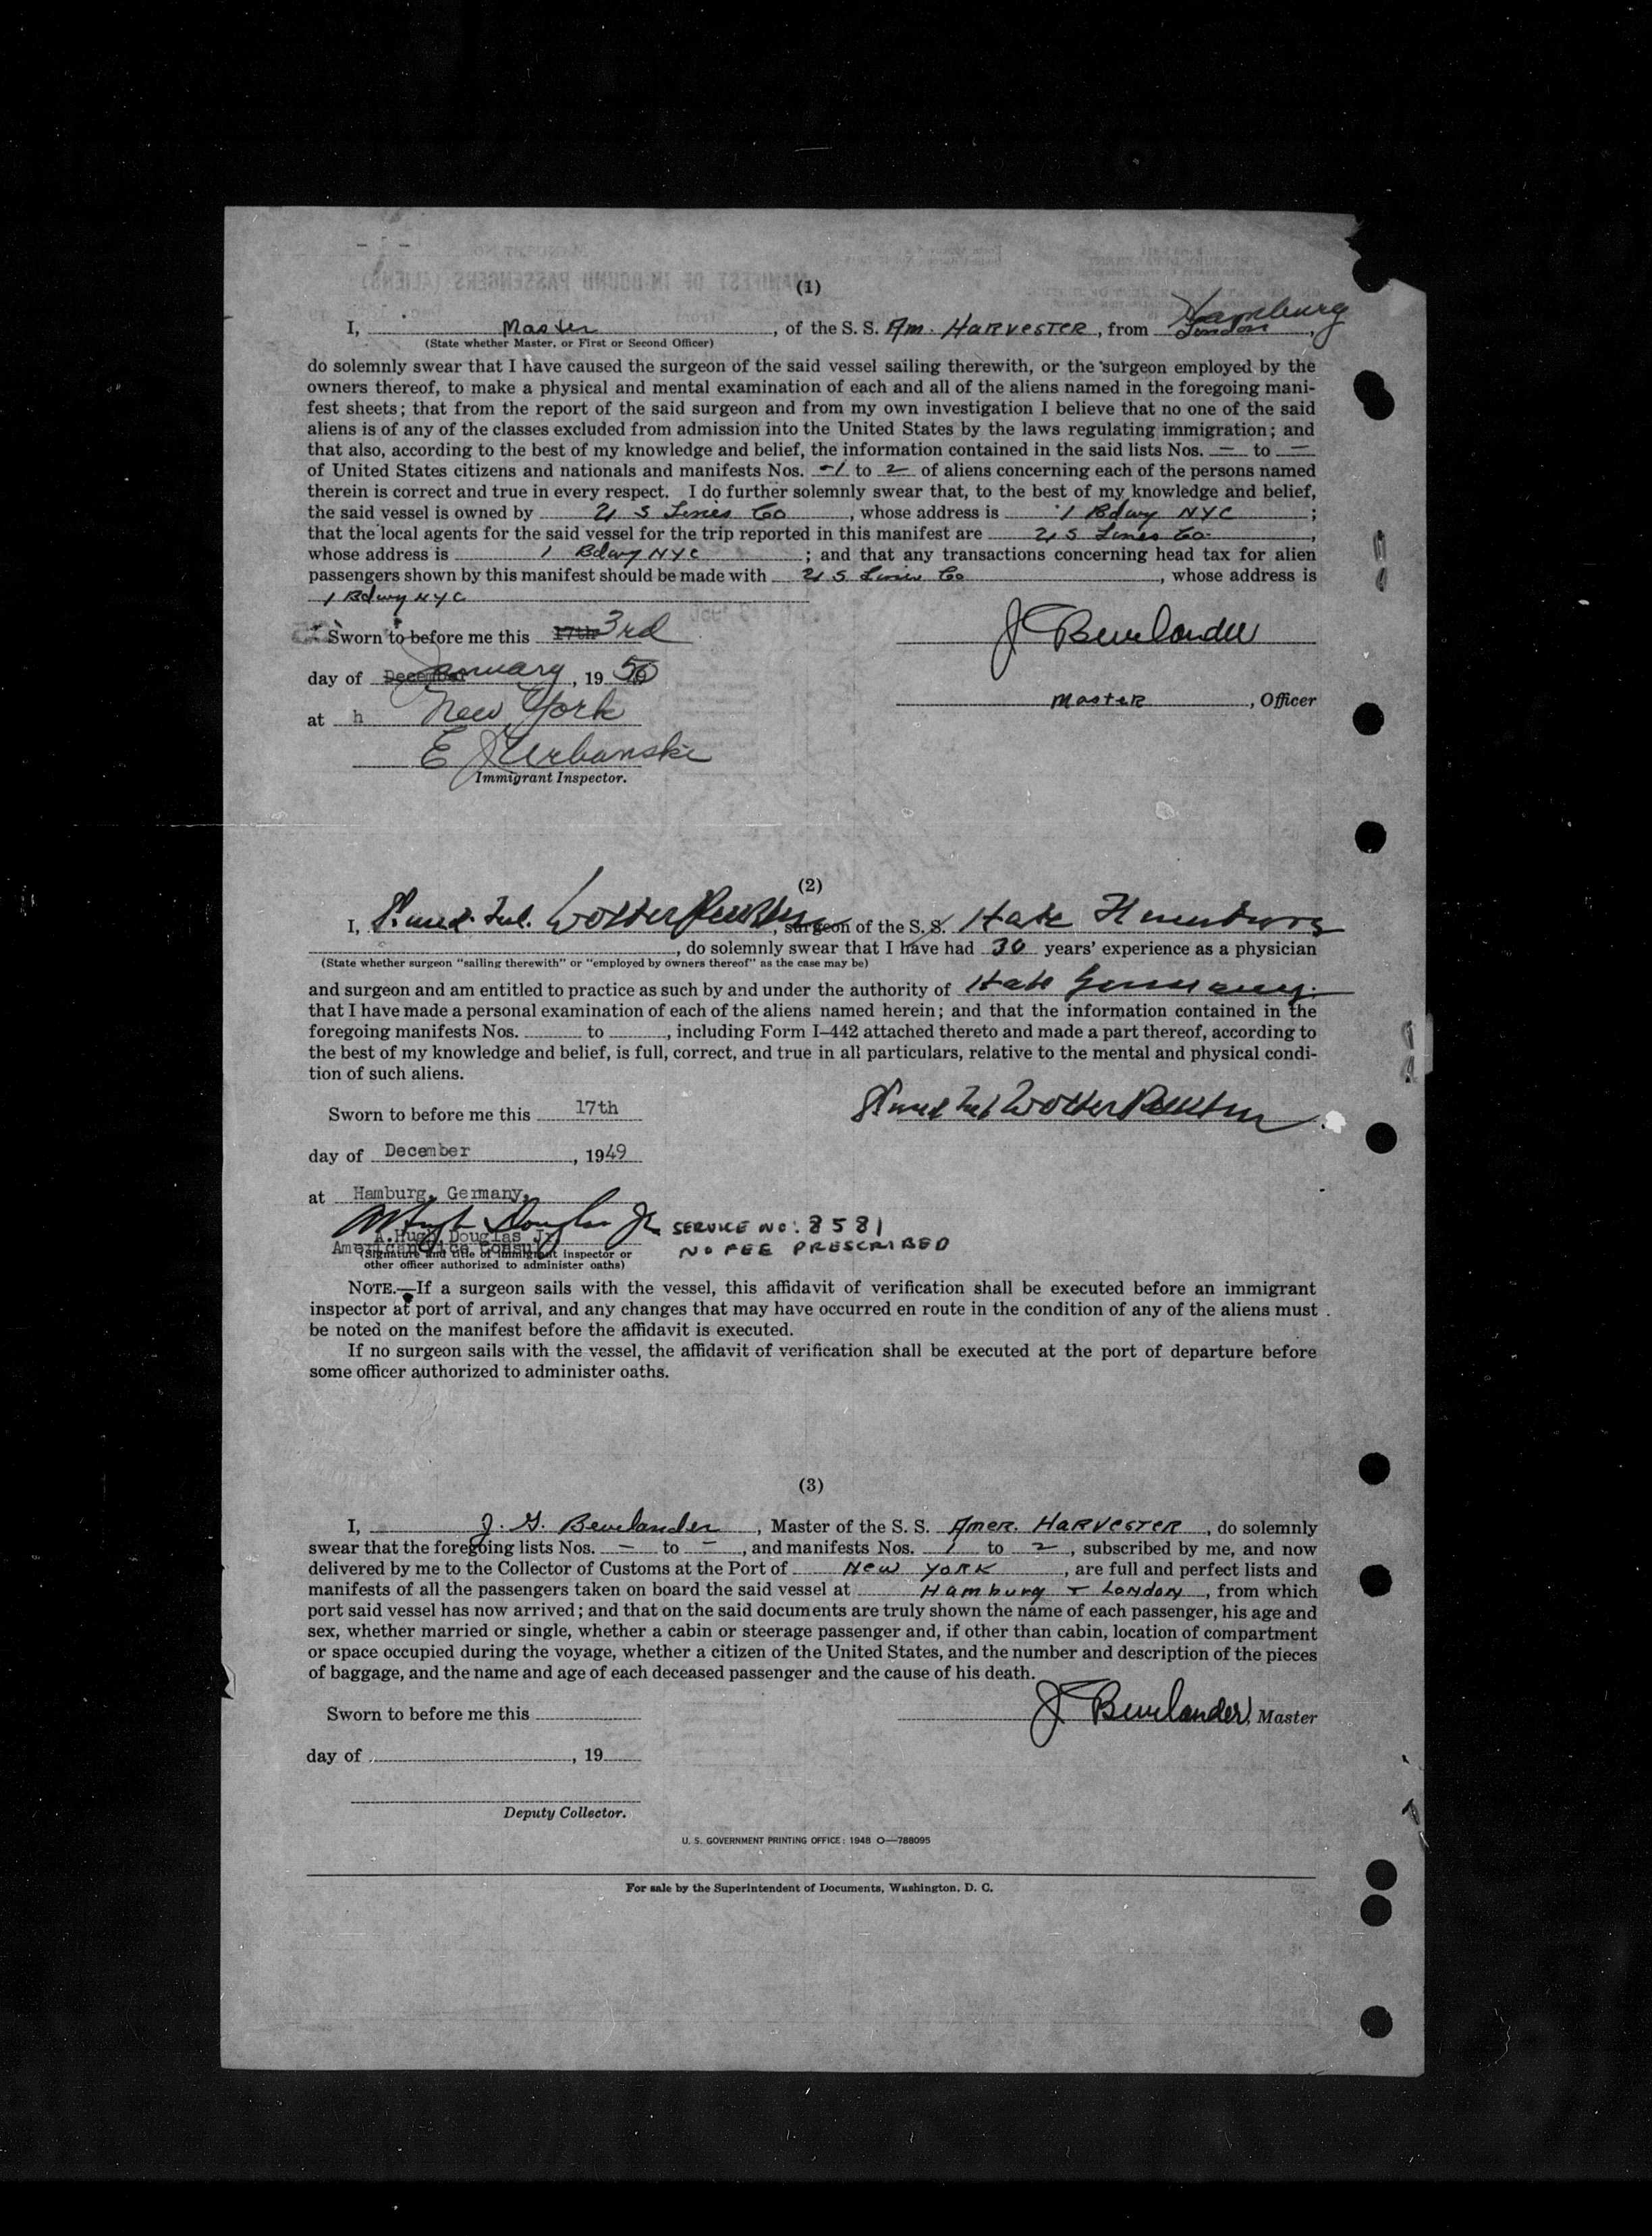 (1)
Hamburg
I, Master, of the S. S. Am. HARVESTER, from London,
(State whether Master, or First or Second Officer)
do solemnly swear that I have caused the surgeon of the said vessel sailing therewith, or the surgeon employed by the
owners thereof, to make a physical and mental examination of each and all of the aliens named in the foregoing mani-
fest sheets; that from the report of the said surgeon and from my own investigation I believe that no one of the said
aliens is of any of the classes excluded from admission into the United States by the laws regulating immigration; and
that also, according to the best of my knowledge and belief, the information contained in the said lists Nos. — to —
of United States citizens and nationals and manifests Nos. -1 to 2 of aliens concerning each of the persons named
therein is correct and true in every respect. I do further solemnly swear that, to the best of my knowledge and belief,
the said vessel is owned by U S Lines Co, whose address is 1 Bdwy NYC;
that the local agents for the said vessel for the trip reported in this manifest are U S Lines Co.,
whose address is 1 Bdwy NYC; and that any transactions concerning head tax for alien
passengers shown by this manifest should be made with U S Lines Co, whose address is
1 Bdwy NYC
Sworn to before me this 17th 3rd
day of December January, 19 50
at h New York
E J Urbanski
Immigrant Inspector.
Master, Officer
(2)
I, surgeon of the S. S.
, do solemnly swear that I have had 30 years' experience as a physician
(State whether surgeon "sailing therewith" or "employed by owners thereof" as the case may be)
and surgeon and am entitled to practice as such by and under the authority of Germany.
that I have made a personal examination of each of the aliens named herein; and that the information contained in the
foregoing manifests Nos. to , including Form I–442 attached thereto and made a part thereof, according to
the best of my knowledge and belief, is full, correct, and true in all particulars, relative to the mental and physical condi-
tion of such aliens.
Sworn to before me this 17th
day of December, 1949
at Hamburg, Germany,
A. Hugh Douglas Jr
SERVICE NO: 8581
A. Hugh Douglas Jr.
NO FEE PRESCRIBED
American Vice Consul
(Signature and title of immigrant inspector or
other officer authorized to administer oaths)
NOTE.—If a surgeon sails with the vessel, this affidavit of verification shall be executed before an immigrant
inspector at port of arrival, and any changes that may have occurred en route in the condition of any of the aliens must
be noted on the manifest before the affidavit is executed.
If no surgeon sails with the vessel, the affidavit of verification shall be executed at the port of departure before
some officer authorized to administer oaths.
(3)
I, J. G. Beuelander, Master of the S. S. Amer. HARVESTER, do solemnly
swear that the foregoing lists Nos. — to —, and manifests Nos. 1 to 2, subscribed by me, and now
delivered by me to the Collector of Customs at the Port of NEW YORK, are full and perfect lists and
manifests of all the passengers taken on board the said vessel at Hamburg & London, from which
port said vessel has now arrived; and that on the said documents are truly shown the name of each passenger, his age and
sex, whether married or single, whether a cabin or steerage passenger and, if other than cabin, location of compartment
or space occupied during the voyage, whether a citizen of the United States, and the number and description of the pieces
of baggage, and the name and age of each deceased passenger and the cause of his death.
Sworn to before me this
, Master
day of , 19
Deputy Collector.
U. S. GOVERNMENT PRINTING OFFICE: 1948 O—788095
For sale by the Superintendent of Documents, Washington, D. C.